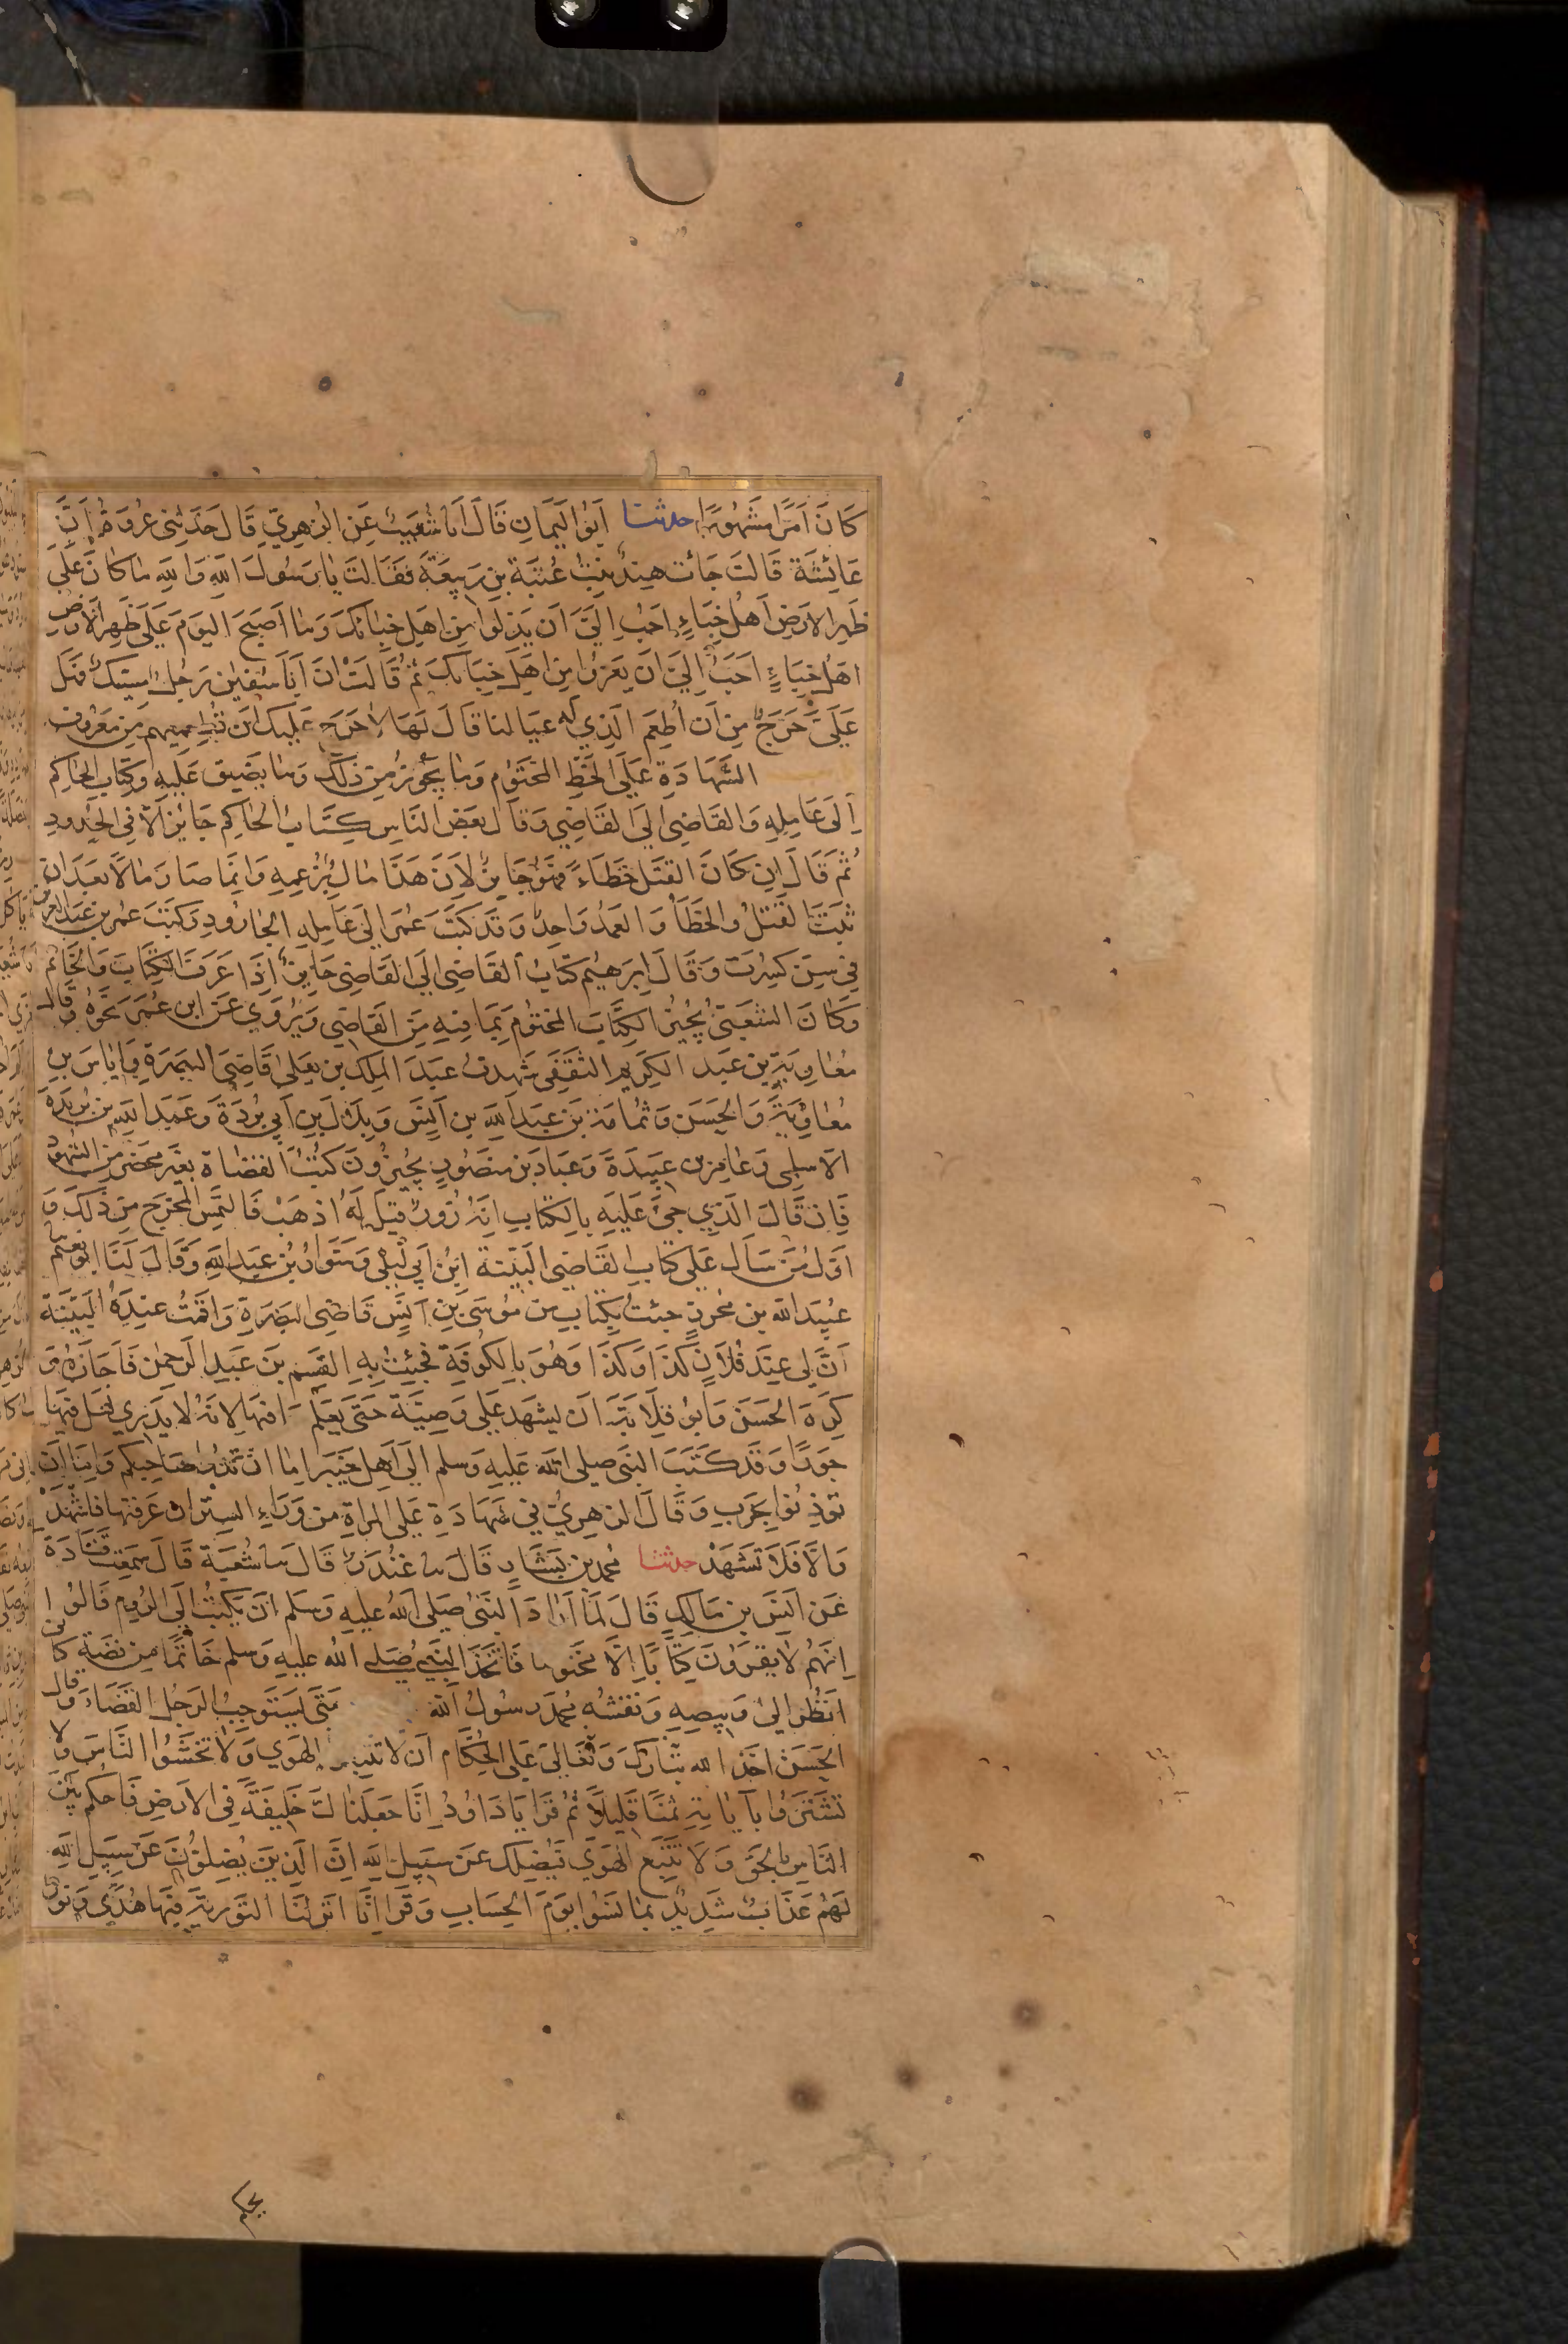 كَانَ اَمْرًا مَشْهُورًا حدثنا اَبُو الْيَمَانِ قَالَ اَنَا شُعَيْبٌ عَنِ الزهرِيِّ قَالَ حَدَّثَنِي عُروَةُ اَنَّ
عَائِشَةَ قَالَتْ جَائَتْ هِنْدٌ بِنْتُ عُتْبَةَ بْنِ رَبِيعَةَ فَقَالَتْ يَا رَسُولَ اللهِ وَاللهِ مَا كَانَ عَلَى
ظَهْرِ الارَضِ اَهْلُ خِبَاءٍ اَحَبُّ اِلَيَّ اَن يَذِلوا مِن اَهلِ خِبَائكَ وَمَا اَصبَحَ اليَومَ عَلَى ظَهرِ الاَرضِ
اهلُ خِبَاءٍ اَحَبُّ اِلَيَّ اَن يَعِزُّوا مِن اهَلِ خِبَائكَ ثُمَّ قَالَتْ انَ اَبَا سُفيٰنَ رَجُلٌ مسِّيكٌ فهَل
عَلَىَّ حَرَجٌ مِن اَن اُطعِمَ الَذِي لَه عيَالنا قَالَ لَهَا لاَ حَرَجَ عَلَيكَ اَن تُطعِميهِم مِن مَعْرُوفٍ
الشَّهَادَةِ عَلَى الخَطِّ المَختَوُمِ وَمَا يَجُوزُ مِن ذَلَكَ وَمَا يضَيق عَلَيهِ وَكِتَابِ الحَاكِم
اِلَى عَامِلِهِ وَالقَاضِى اِلَى القَاضِي وَقَالَ بَعَضُ النَاسِ كِتَابُ الحَاكِمِ جَائِزٌ اِلّاَ فِى الحُدُودِ
ثُمَّ قَالَ اِن كَانَ القَتلُ خَطَاءً فهُوَ جَايزٌ لاَنَ هَذَا مَالٌ بُزعمِهِ وَانِمَّا صَارَ مَالاً بَعدَ ان
ثَبتَ القَتلُ والخَطَأُ وَالعَمدُ وَاحِدٌ وَقَد كَتَبَ عُمَرُ اِلَى عَامِلِهِ الجَارُودِ وَكتَبَ عمُر بن عَبدِ العزيز
فِي سِنٍ كسِرَت وَقَالَ اِبرَهيُم كتَابُ القَاضِى اِلَى القَاضِي جَايِزٌ اِذَا عَرَفَ الكِتَابَ وَالخَاتِمَ
وَكَانَ الشعَبىُّ يُجِيزُ الكِتَابَ المختُومَ بِمَا فِيهِ مِنَ القَاضِي وَيُروَى عَنِ ابنِ عُمَرَ نَحوُهُ وقَالَ
مُعَاوِيَةُ بن عَبد الكَرِيمِ الثقَفِى شَهِدتُ عَبدَ المَلِكِ بن يعَلى قَاضِىَ البَصرَةِ وَايَاسَ بنِ
مُعَاوِيَةَ وَالحَسَن وَثمُامَةَ بن عَبدِ اللهِ بن اَنَسٍ وَبِلاَلَ بن اَبِي بُردَةَ وَعَبدَ اللهِ بن بُريدَةَ
الاَسلَمِى وَعَامِرَ بن عبِيدَةَ وَعَبادَ بن مَنصُورٍ يجُيزُونَ كتُبَ القضَاة بغَير محَضَر من الشهُودِ
فَاِن قَالَ الَذِي جِئَ عَلَيهِ بِالكتَابِ انَهُ زُورٌ قِيلَ لَهُ اذهَبْ فَالتمَسِ المَخرَجَ مِن ذَلكَ وَ
اَوَّلُ مَن سَألَ عَلَى كتَابِ القَاضِى البَيِّنةَ ابنُ اَبِي لَيلَى وَسَوَارُ بنُ عَبدِ اللهِ وَقَالَ لَنَا ابو نعَيم
عُبيَدُ الله بن مُحرزٍ جئتُ بِكِتَابٍ مِن مُوسَى بنِ اَنَسٍ قَاضِى البَصرَةِ وَاقَمتُ عِندَهُ البَيِّنَةَ
اَنَّ لى عِندَ فُلاَنٍ كَذَا وَكَذَا وَهُوَ بِالكُوفَةِ فجَئِتُ بِهِ القسِم بنَ عَبدِ الرَحمٰن فَاَجَازَهُ وَ
كَرِهَ الحَسَن وَابُو قلاَبَةَ اَن يشَهد عَلَى وَصِيَّة حَتَى يعَلمَ مَا فيهَا لانَهُ لا يَدرِي لعَلَ فِيهَا
جَورًا وَقَد كَتَبَ النبَى صلى الله عَليهِ وَسلم اِلَى اَهلِ خَيبَر اِمَا ان تدُوا صَاحِبكُم وَاِمَّا اَن
تؤذِنوُا بِحَربٍ وَقَالَ الزهرِىُّ فِي شَهَادَةٍ عَلَى المَراةِ مِن وَرَاءِ السِتر ان عَرَفتهَا فَاشْهَدْ
وَاِلَّا فَلَا تَشهَدْ حدثنا مُحَمدُ بن بَشَّارٍ قَالَ نا غُندَرٌ قَالَ نا شُعبَة قَالَ سَمعَت قَتَادَةَ
عَن اَنَسِ بن مَالِكٍ قَالَ لَمَّا اَرَادَ النَبَىُّ صَلى اللهُ عليهِ وَسَلم اَن يَكتبُ اِلَى الرُومِ قَالوُا
اِنَهُّم لاَ يقرؤنَ كِتَابًا اِلَّا مَختُوما فَاتَّخَذَ النَبِىُّ صَلى اللهُ عليهِ وَسلم خَاتَمًا مِن فضّةٍ كَاني
انَظُر الىٰ وَبِيصِهِ وَنَقشُهُ مُحَمدٌ رَسُولُ اللهِ مَتَى يَستَوجِبُ الرَجُل القَضَاءَ وَقَال
الحَسَن اخَذ الله تبَاركَ وَتَعَالى عَلَى الحُكّام اَن لا تتبعوا الهَوي وَلاَ تخشَوُا النَّاسَ وَلا
تشَتَرُوا بآيَاتِهِ ثَمنًا قَلِيلاً ثُمَّ قَرَا يَا دَاوُدُ اِنَّا جَعَلنَاكَ خَلِيفَةً فِى الاَرضِ فَاحكُم بَيْنَ
النَّاسِ بِالحَقِّ وَلا تَتَّبِع الهَوَى فَيُضِلكَ عَن سَبِيلِ اللهِ اِنَّ الَذِينَ يَضِلوُّنَ عَن سَبِيلِ اللهِ
لَهُم عَذَابٌ شَدِيدٌ بمَا نَسُوا يَومَ الحِسَابِ وَقَرَا اِنَّا اَنزَلنَا التَورٰيةَ فِيهَا هُدًى وَنورٌ
يحكم